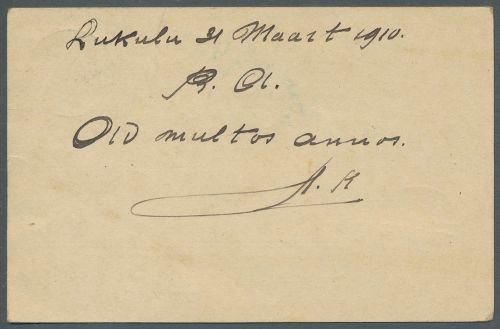 Lukulu 31 Maart 1910.
B. A.
Ad multos annos.
A. H